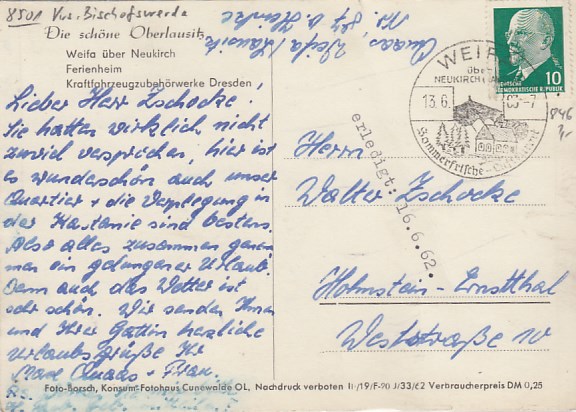 8501 Krs. Bischofswerda
Die schöne Oberlausitz
Weifa über Neukirch
Ferienheim
Kraftfahrzeugzubehörwerke Dresden
Quaas, Weifa/Lausitz
WEIFA
über
NEUKIRCH
13.6.
-7
Sommerfrische
10
DEUTSCHE
DEMOKRATISCHE REPUBLIK
846
Lieber Herr Zschocke,
Sie hatten wirklich nicht
zuviel versprochen, hier ist
es wunderschön auch unser
Quartier + die Verpflegung in
der Kastanie sind bestens.
Also alles zusammen genommen
ein gelungener Urlaub.
Denn auch das Wetter ist
sehr schön. Wir senden Ihnen
und Ihrer Gattin herzliche
Urlaubsgrüße Ihr
Quaas + Frau.
erledigt: 16.6.62.
Herrn
Walter Zschocke
Hohnstein-Ernstthal
Weststraße 10
Foto-Borsch, Konsum-Fotohaus Cunewalde OL, Nachdruck verboten II/19/F-90 J/33/62 Verbraucherpreis DM 0,25